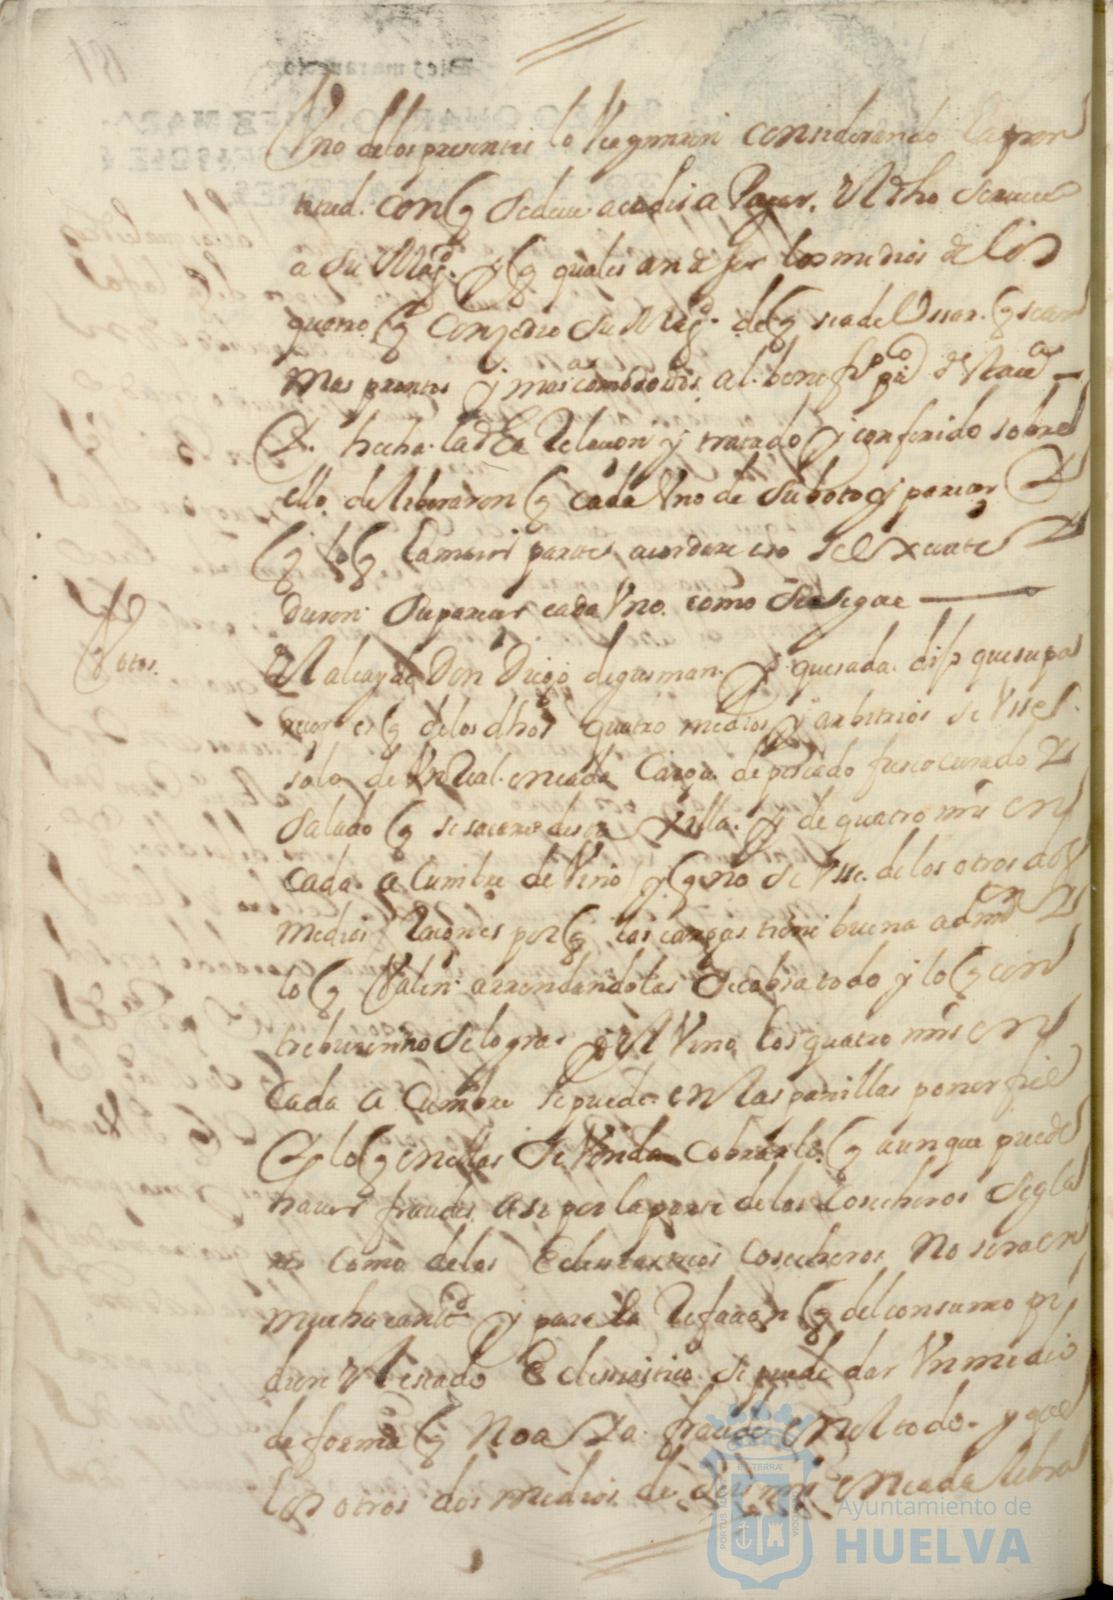 Uno de los presentes lo Vean considerando la pron
titud. con q se deue acudir a Pagar. El dho seruicio
a Su Magd. y q quales an de ser los medios de los
quatro q Conzedio Su Magd. de q sea de Usar. q sean
Mas prontos y mas acomodados al benefiº pcº de Vaca
hecha. la dha Relacion y tratado y conferido sobre
ello. deliberaron q cada Uno de Su boto y parecer
q lo q la mayor parte, acordare eso se Execute
Dieron. Su parecer cada Uno. como Se Sigue
Votos.
El alcayde Don Diego de gusman. y quesada. dijo que su pa
recer es q de los dhos quatro medios y arbitrios se Usse.
solo de Un Real. en cada Carga de pescado fresco curado
Salado q se sacare desta Villa. y de quatro mrs en
Cada. a Cumbre de Vino y q no se Usse. de los otros dos
Medios Racones por q las cargas tiene buena admon
lo q Valen. arrendandolas Se cobra todo y lo q con
tribuien Se logra. y El Vino los quatro mrs en
Cada a Cumbre se puede en las panillas poner fiel
q lo q en ellas Se Venda cobrarlo. q aunque puede
hauer fraudes. asi por la parte de los Cosecheros Segla
res como de los Eclesiasticos Cosecheros No sera en
mucha cantd. y para la Refacion q del consumo pi
diere El estado Eclesiastico. se puede dar Un medio
de forma q No aya. fraude En el todo. y q en
los otros dos medios de dos mrs En cada libra
Ayuntamiento de
HUELVA